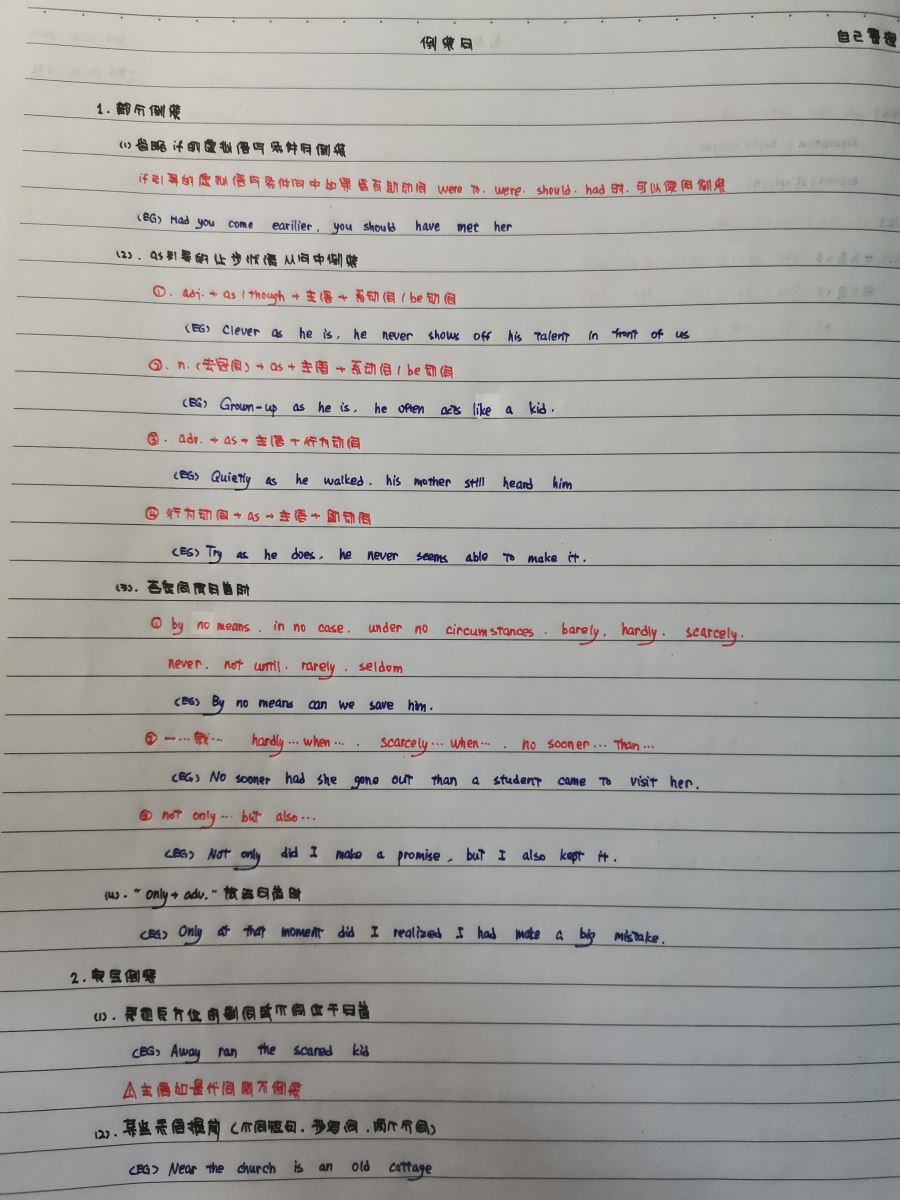 倒装句
自己整理
1. 部分倒装
(1) 省略 if 的虚拟语气条件句倒装
if引导的虚拟语气条件句中如果含有助动词 were to. were. should. had 时. 可以使用倒装
(EG) Had you come earilier, you should have met her
(2). as引导的让步状语从句中倒装
①. adj. + as / though + 主语 + 系动词 / be动词
(EG) Clever as he is, he never shows off his talent in front of us
②. n. (去冠词) + as + 主语 + 系动词 / be动词
(EG) Grown-up as he is, he often acts like a kid.
③. adv. + as + 主语 + 行为动词
(EG) Quietly as he walked, his mother still heard him
④ 行为动词 + as + 主语 + 助动词
(EG) Try as he does, he never seems able to make it.
(3). 否定词放句首时
① by no means. in no case. under no circumstances. barely. hardly. scarcely.
never. not until. rarely. seldom
(EG) By no means can we save him.
② 一…就… hardly…when…. scarcely…when…. no sooner…than…
(EG) No sooner had she gone out than a student came to visit her.
③ not only… but also…
(EG) Not only did I make a promise, but I also kept it.
(4). "only + adv." 放在句首时
(EG) Only at that moment did I realized I had make a big mistake.
2. 完全倒装
(1). 表地点方位的副词或介词位于句首
(EG) Away ran the scared kid
⚠主语如是代词则不倒装
(2). 某些表语提前 (介词短句. 形容词. 两个分词)
(EG) Near the church is an old cottage